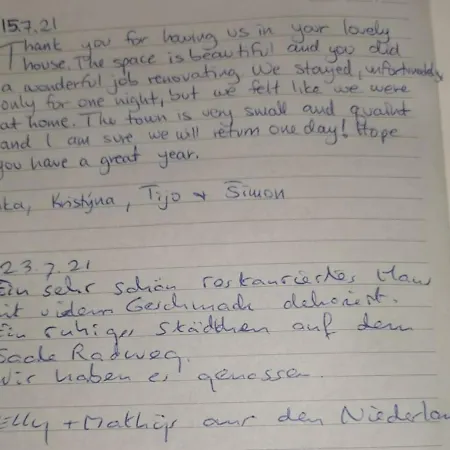 15.7.21
Thank you for having us in your lovely
house. The space is beautiful and you did
a wonderful job renovating. We stayed, unfortunately
only for one night, but we felt like we were
at home. The town is very small and quaint
and I am sure we will return one day! Hope
you have a great year.
ka, Kristýna, Tijo + Šimon
23.7.21
Ein sehr schön restauriertes Haus
it vielem Geschmack dekoriert.
Ein ruhiges Städtchen auf dem
Saale Radweg.
Wir haben es genossen.
Elly + Mathijs aus den Niederlan